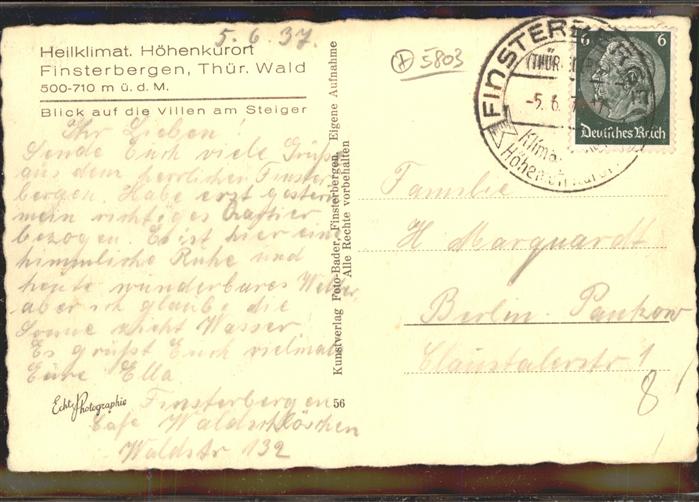 5.6.37.
Heilklimat. Höhenkurort
Finsterbergen, Thür. Wald
500-710 m ü. d. M.
Blick auf die Villen am Steiger
Ihr Lieben
Sende Euch viele Grüß
aus dem herrlichen Finster
bergen. Habe erst gestern
mein richtiges Quartier
bezogen. Es ist hier eine
himmlische Ruhe und
heute wunderbares Wetter
aber ich glaube die
Sonne zieht Wasser
Es grüßt Euch vielmal
Eure Ella
Echte Photographie
Finsterbergen
Cafe Waldschlöschen
Waldstr 132
Kunstverlag Foto-Bader, Finsterbergen, Eigene Aufnahme
Alle Rechte vorbehalten
56
5803
FINSTERBERGEN
(THÜR.
-5.6.
Klima
Höhen
6 6
Deutsches Reich
Familie
H Marquardt
Berlin-Pankow
Claustalerstr 1
8